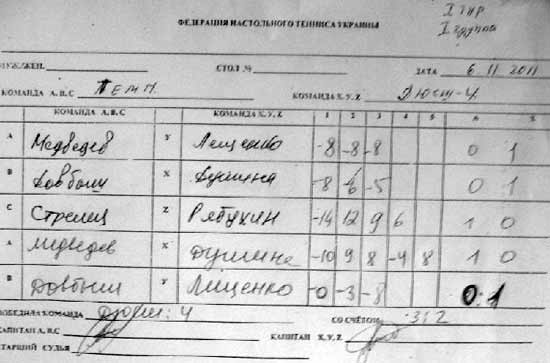 I тур
I группа
ФЕДЕРАЦИЯ НАСТОЛЬНОГО ТЕННИСА УКРАИНЫ
МУЖ/ЖЕН. СТОЛ № ДАТА 6.11 2011
КОМАНДА А, В, С Темп. КОМАНДА X, Y, Z Дюсш-4
КОМАНДА А, В, С КОМАНДА X, Y, Z 1 2 3 4 5
А Медведев Y Лещенко -8 -8 -8 0 1
В Довбыш X Душина -8 -6 -5 0 1
С Стрелец Z Рябухин -14 12 9 6 1 0
А Медведев X Душина -10 9 8 -4 8 1 0
В Довбыш Y Лищенко -0 -3 -8 0:1
ПОБЕДИЛА КОМАНДА 4 СО СЧЁТОМ 3:2
КАПИТАН А, В, С КАПИТАН X, Y, Z
СТАРШИЙ СУДЬЯ